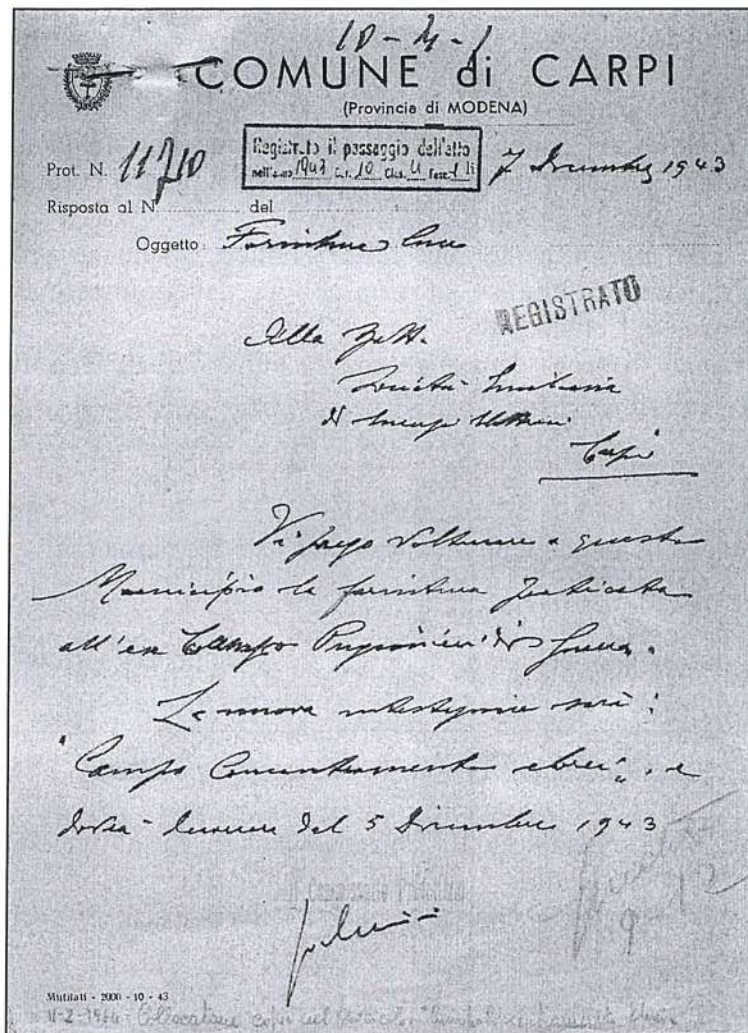 10-4-1
COMUNE di CARPI
(Provincia di MODENA)
Prot. N. 11710
Registrato il passaggio dell'atto
nell'anno 1943 Cat. 10 Clas. 4 Fasc. 1
7 Dicembre 1943
Risposta al N. del
Oggetto: Fornitura luce
REGISTRATO
Alla
Società
di Energia
Carpi
Vi prego volturare a questo
Municipio la fornitura praticata
all'ex Campo Prigionieri di Guerra.
La nuova intestazione sarà:
"Campo Concentramento ebrei", e
dovrà decorrere dal 5 Dicembre 1943
Mutilati - 2000 - 10 - 43